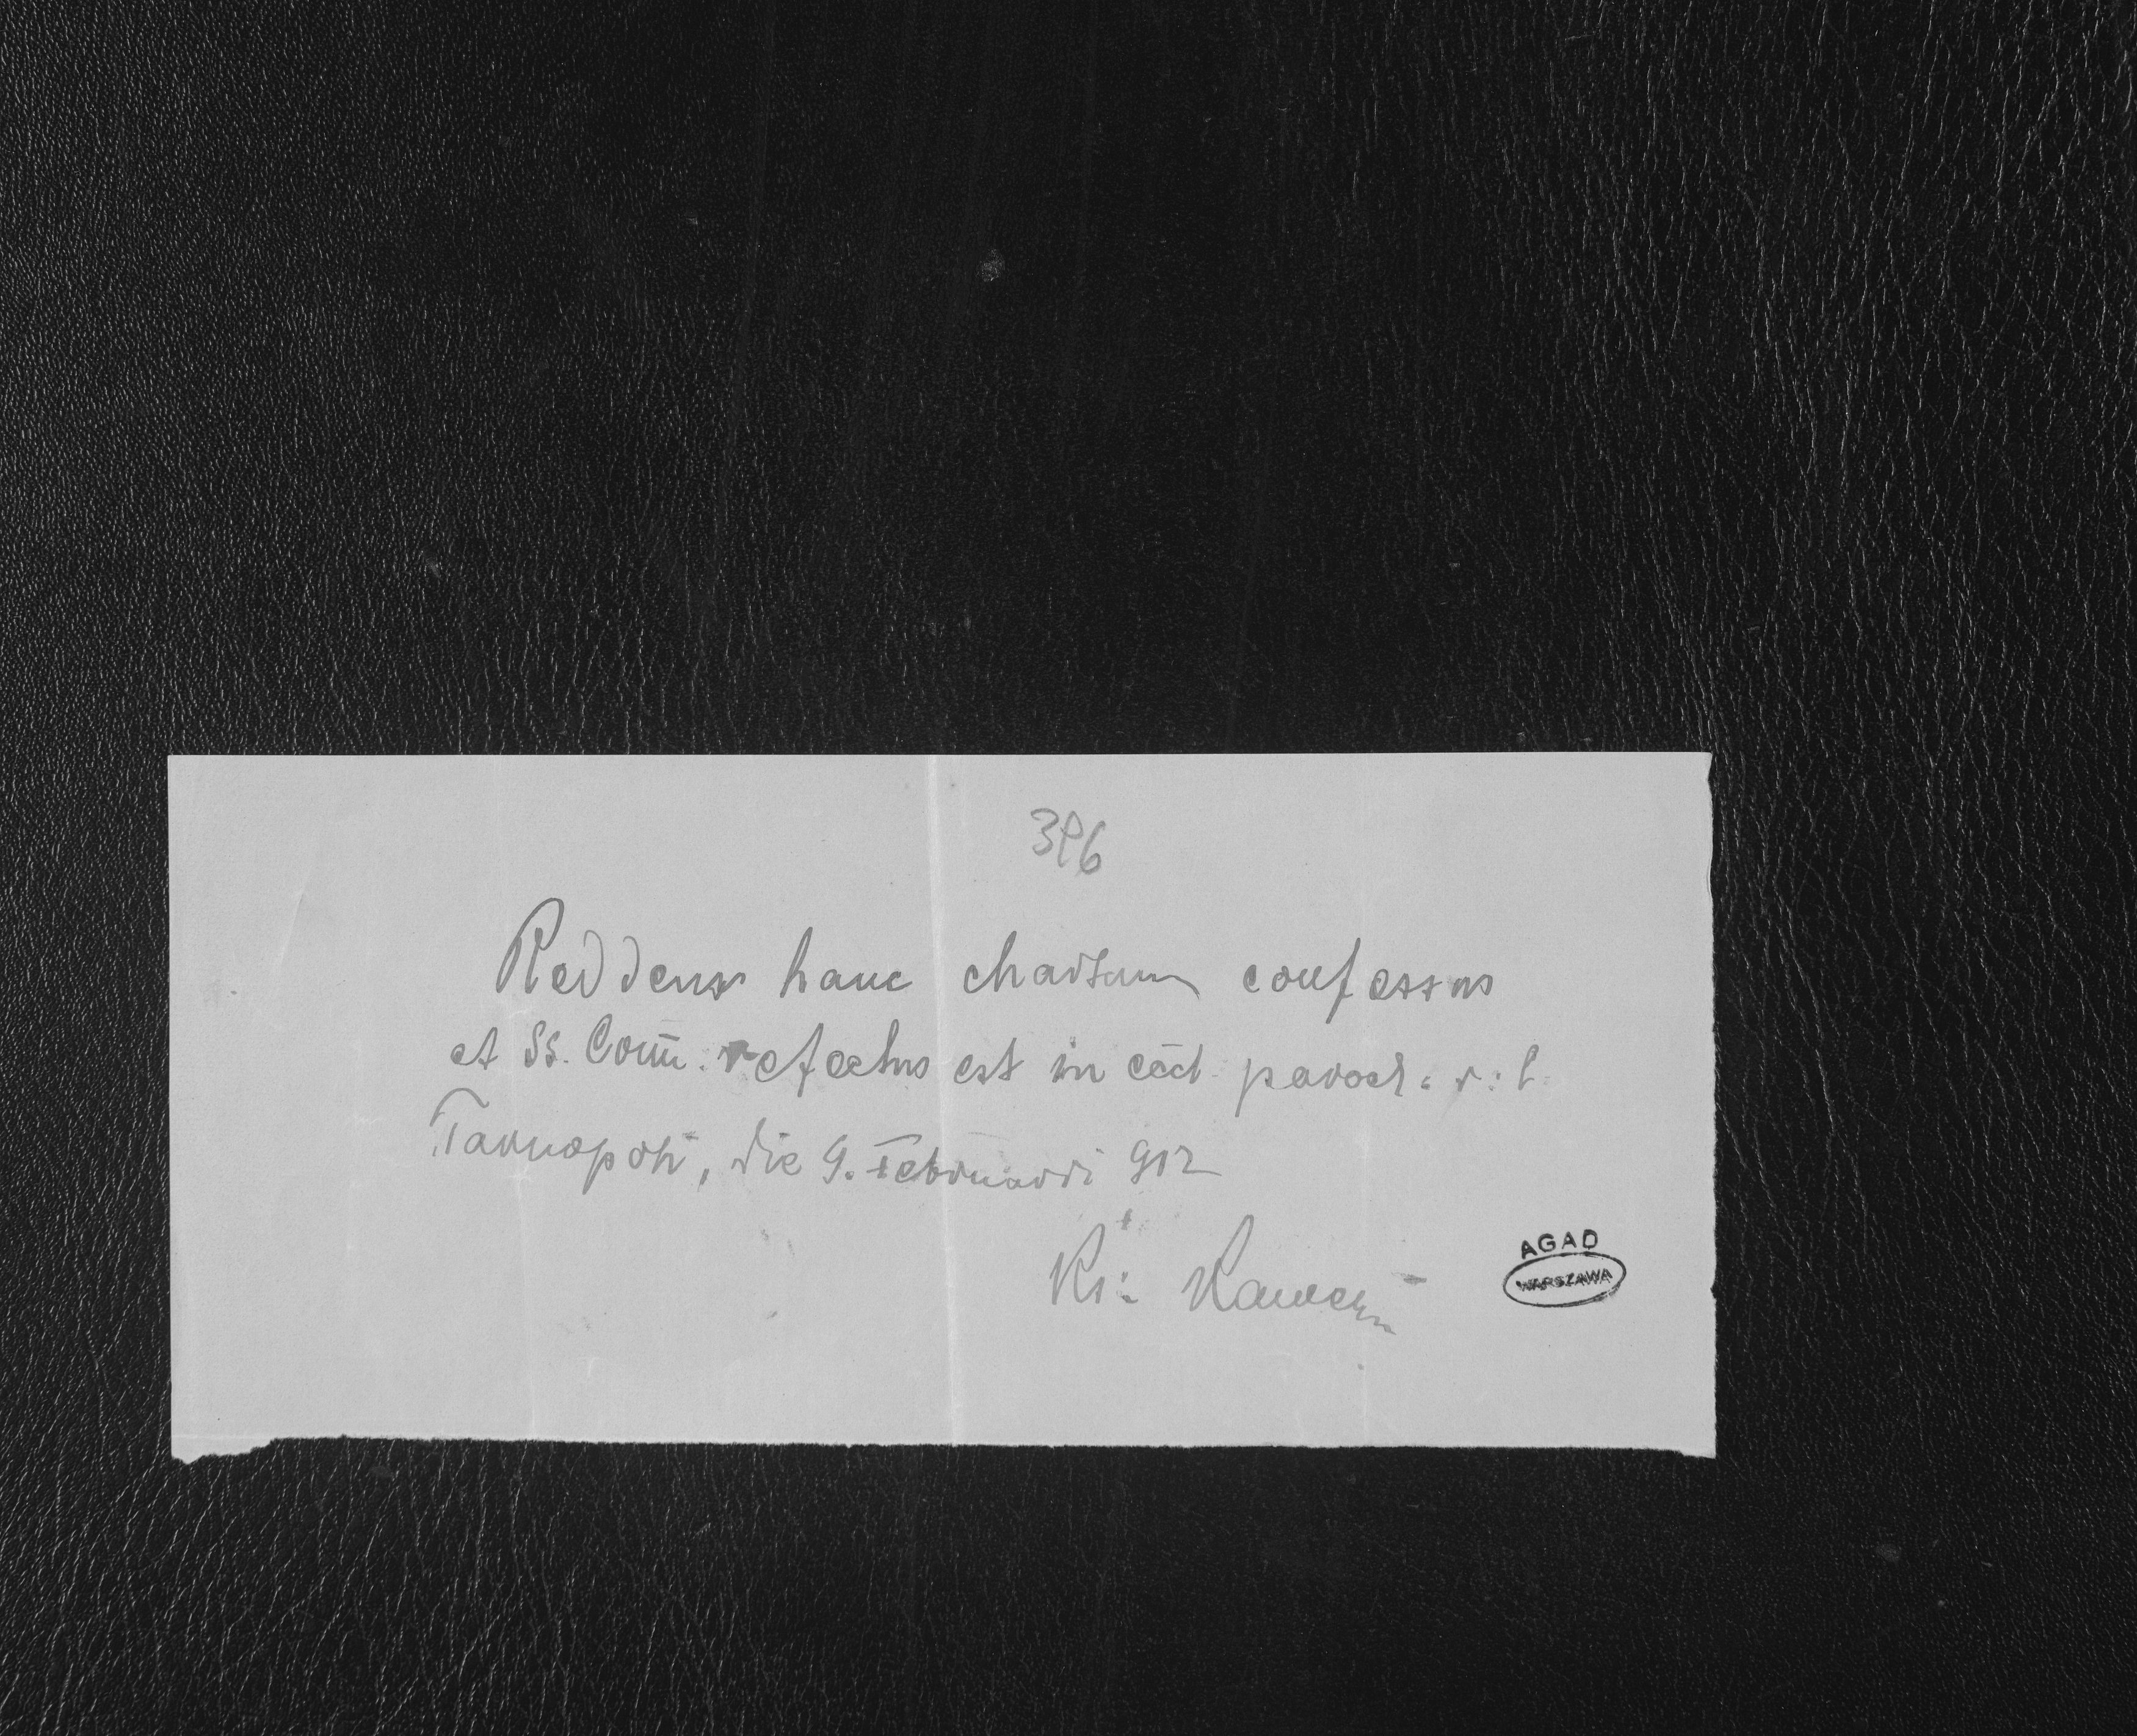 396
Reddens hanc chartam confessus
et Ss. Com̄. refectus est in eccl. paroch. r: l.
Tarnopoli, die 9. Februarii 912
AGAD
WARSZAWA